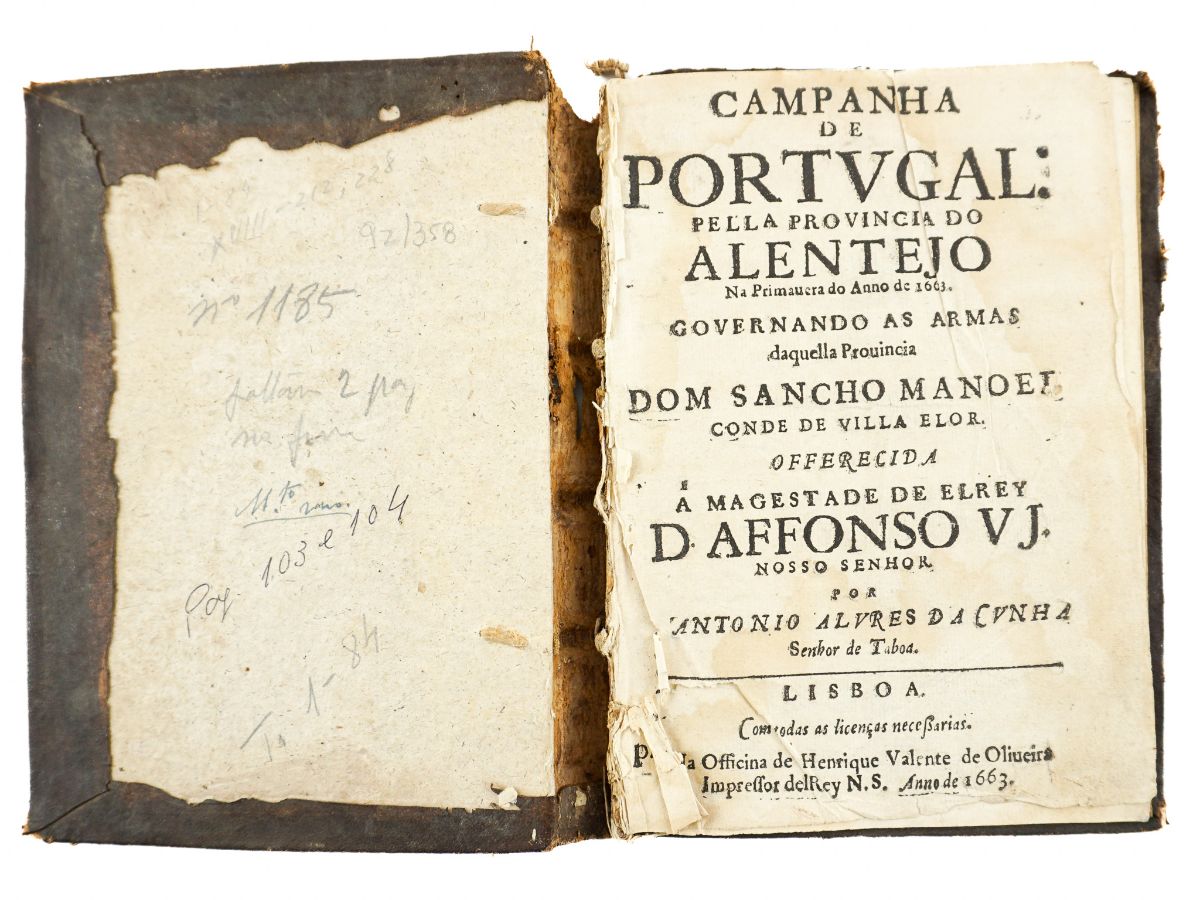 92/358
nº 1185
faltam 2 pag
no fim
M.to raro.
103 e 104
Pag
84
CAMPANHA
DE
PORTVGAL:
PELLA PROVINCIA DO
ALENTEJO
Na Primauera do Anno de 1663.
GOVERNANDO AS ARMAS
daquella Prouincia
DOM SANCHO MANOEL
CONDE DE VILLA FLOR.
OFFERECIDA
Á MAGESTADE DE ELREY
D. AFFONSO VJ.
NOSSO SENHOR
POR
ANTONIO ALVRES DA CVNHA
Senhor de Taboa.
LISBOA.
Com todas as licenças neceſſarias.
Na Officina de Henrique Valente de Oliueira
Impreſſor delRey N.S. Anno de 1663.